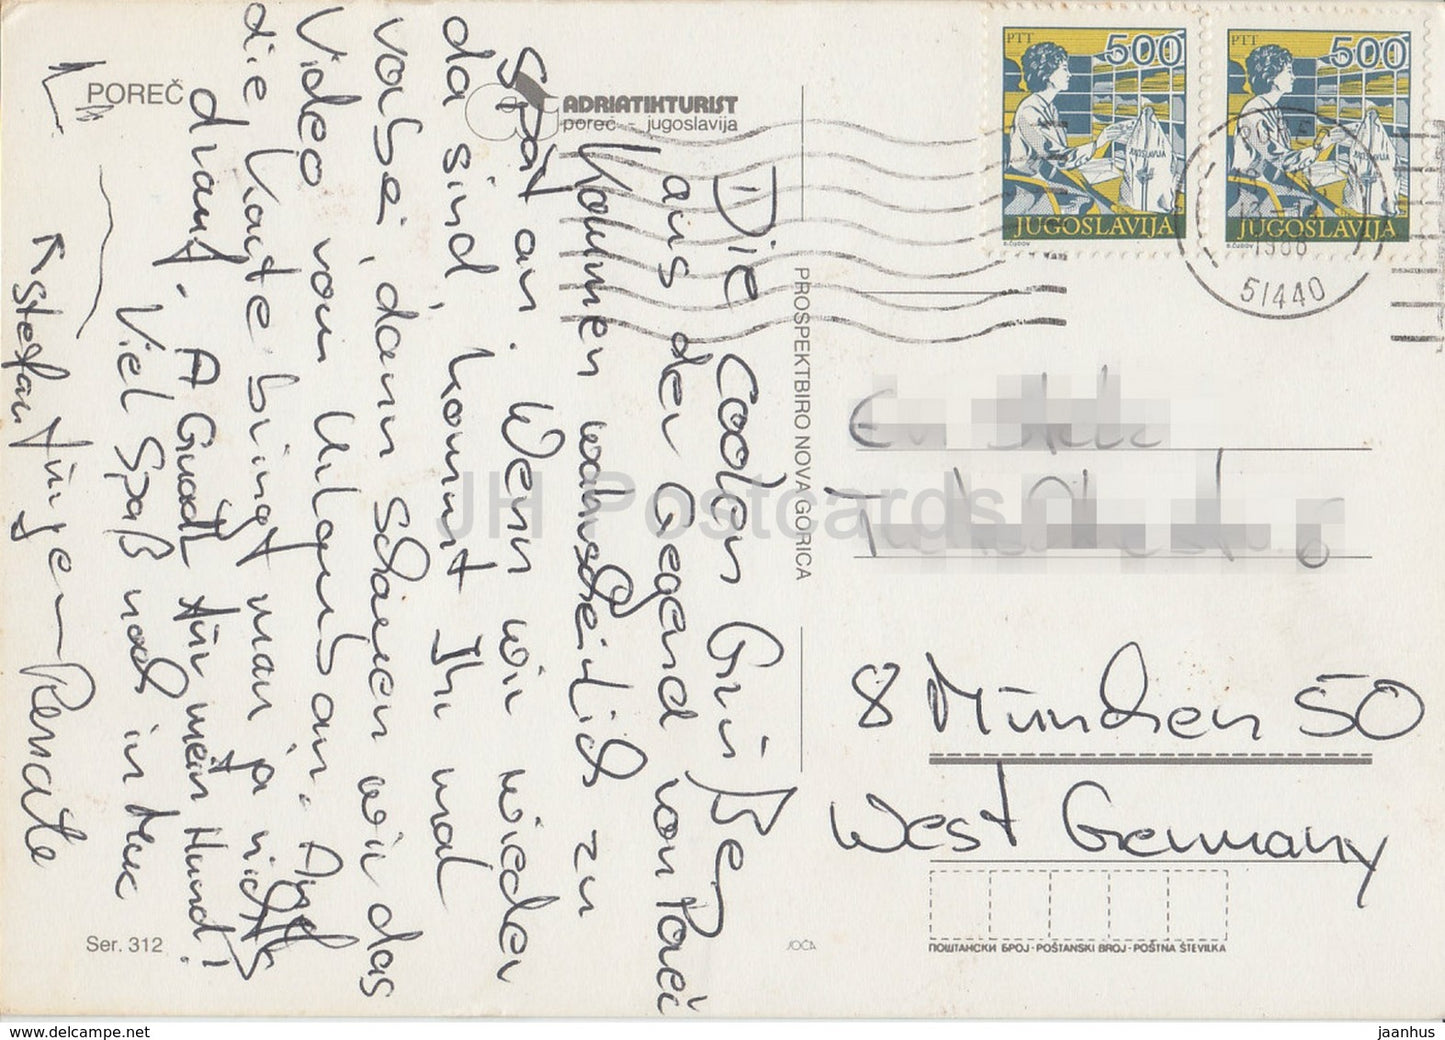 POREČ
ADRIATIKTURIST
poreč - jugoslavija
PTT
500
JUGOSLAVIJA
PTT
500
JUGOSLAVIJA
1988
51440
Die Coolen Grüße
aus der Gegend von Poreč
Kommen wahrscheinlich zu
Spät an. Wenn wir wieder
da sind, kommt Ihr mal
vorbei, dann schauen wir das
Video vom Urlaub an. Auf
die Karte bringt man ja nichts
drauf. A Guads für mein Hund!
Viel Spaß noch in Muc
Stefan Jürgen Renate
PROSPEKTBIRO NOVA GORICA
8 München 50
West Germany
ПОШТАНСКИ БРОЈ - POŠTANSKI BROJ - POŠTNA ŠTEVILKA
Ser. 312
JH Postcards
www.delcampe.net
jaanhus